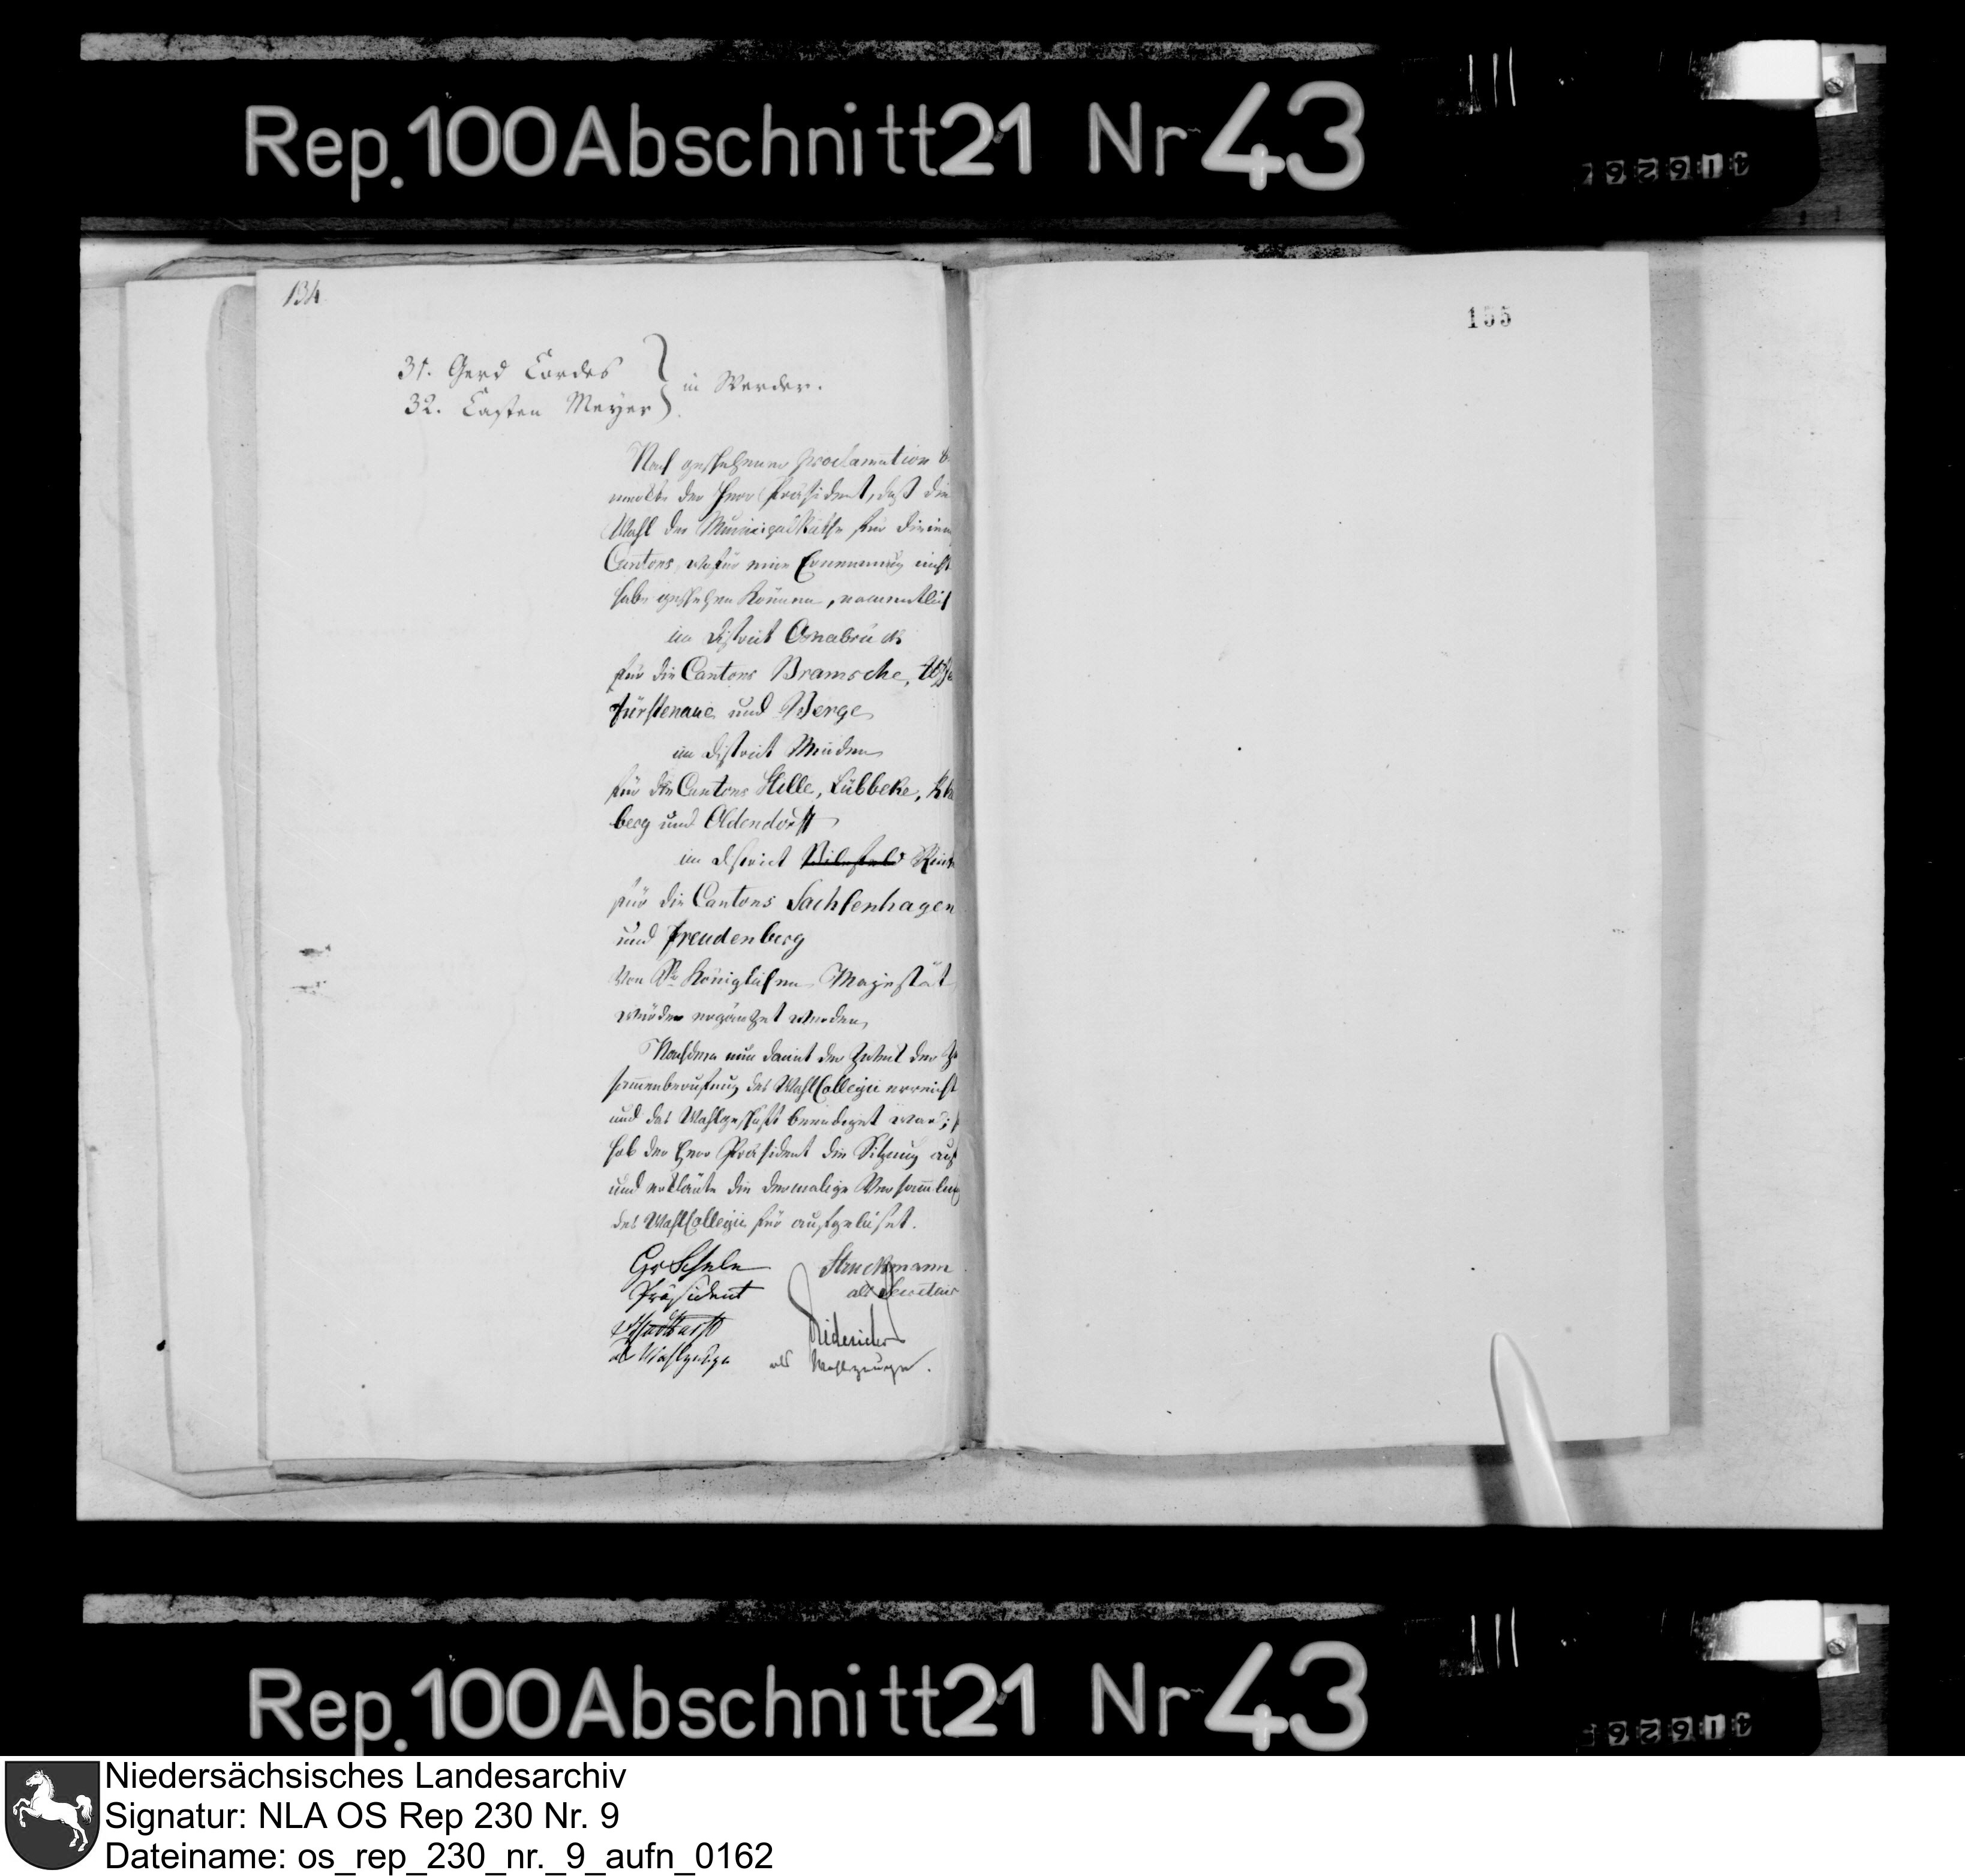 Rep. 100 Abschnitt 21 Nr 43
41626
134
155
31. Gerd Cordes
32. Casten Meyer
in Werder.
Nach geschehener proclamation be
merkte der Herr Präsident, daß die
Wahl der Municipal Räthe für diejenigen
Cantons, wofür eine Ernennung nicht
habe geschehen können, namentlich
im District Osnabrück
für die Cantons Bramsche,
Fürstenaue und Berge
im District Minden
für die Cantons Hille, Lübbeke,
berg und Oldendorff
im District Bilefeld Rint
für die Cantons Sachsenhagen
und Freudenberg
von Sr Königlichen Majestät
würden ergänzet werden,
Nachdem nun damit der Zweck der Zu
sammenberufung des WahlCollegii erreicht
und das Wahlgeschäft beendiget war;
hob der Herr Präsident die Sitzung auf
und erklärte die dermalige Versammlung
des WahlCollegii für aufgelöset.
Gr Schele
Präsident
Struckmann
als Secretair
als Wahlzeuge
als Wahlzeuge.
Rep. 100 Abschnitt 21 Nr 43
41626
Niedersächsisches Landesarchiv
Signatur: NLA OS Rep 230 Nr. 9
Dateiname: os_rep_230_nr._9_aufn_0162